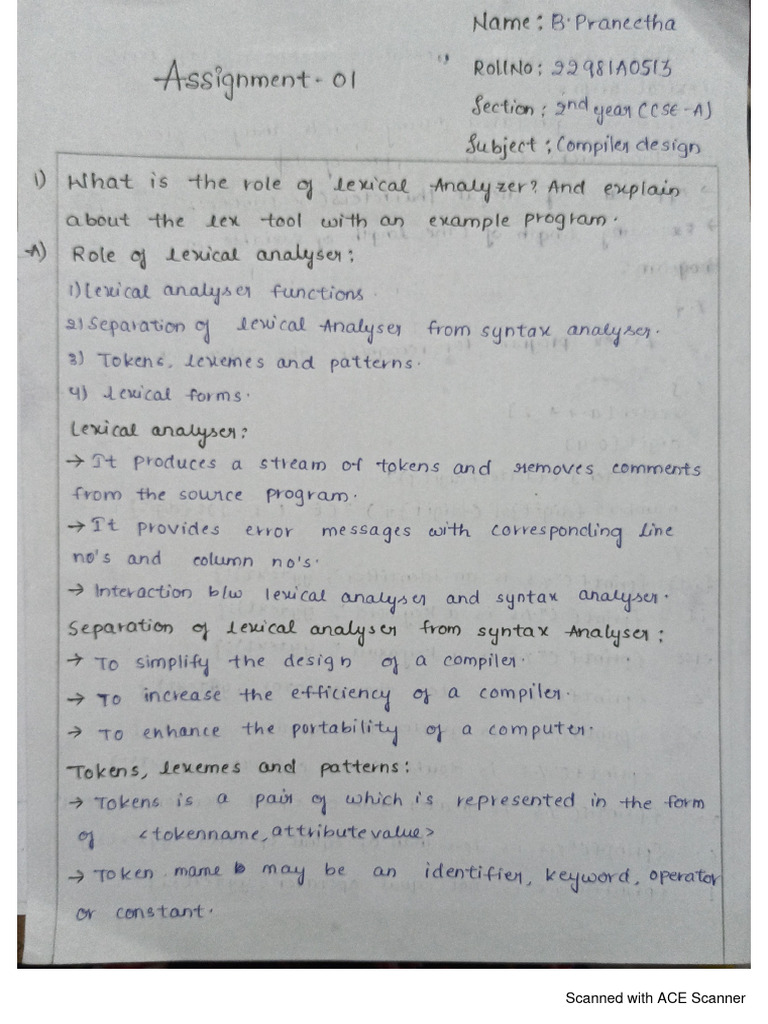 Name: B. Praneetha
Assignment - 01
RollNo: 22981A0513
Section: 2nd year (CSE-A)
Subject: Compiler design
1) What is the role of lexical Analyzer? And explain
about the lex tool with an example program.
A) Role of lexical analyser:
1) Lexical analyser functions.
2) Separation of lexical Analyser from syntax analyser.
3) Tokens, lexemes and patterns.
4) lexical forms.
Lexical analyser:
→ It produces a stream of tokens and removes comments
from the source program.
→ It provides error messages with corresponding line
no's and column no's.
→ Interaction b/w lexical analyser and syntax analyser.
Separation of lexical analyser from syntax Analyser:
→ To simplify the design of a compiler.
→ To increase the efficiency of a compiler.
→ To enhance the portability of a computer.
Tokens, lexemes and patterns:
→ Tokens is a pair of which is represented in the form
of <tokenname, attributevalue>
→ Token name may be an identifier, keyword, operator
or constant.
Scanned with ACE Scanner